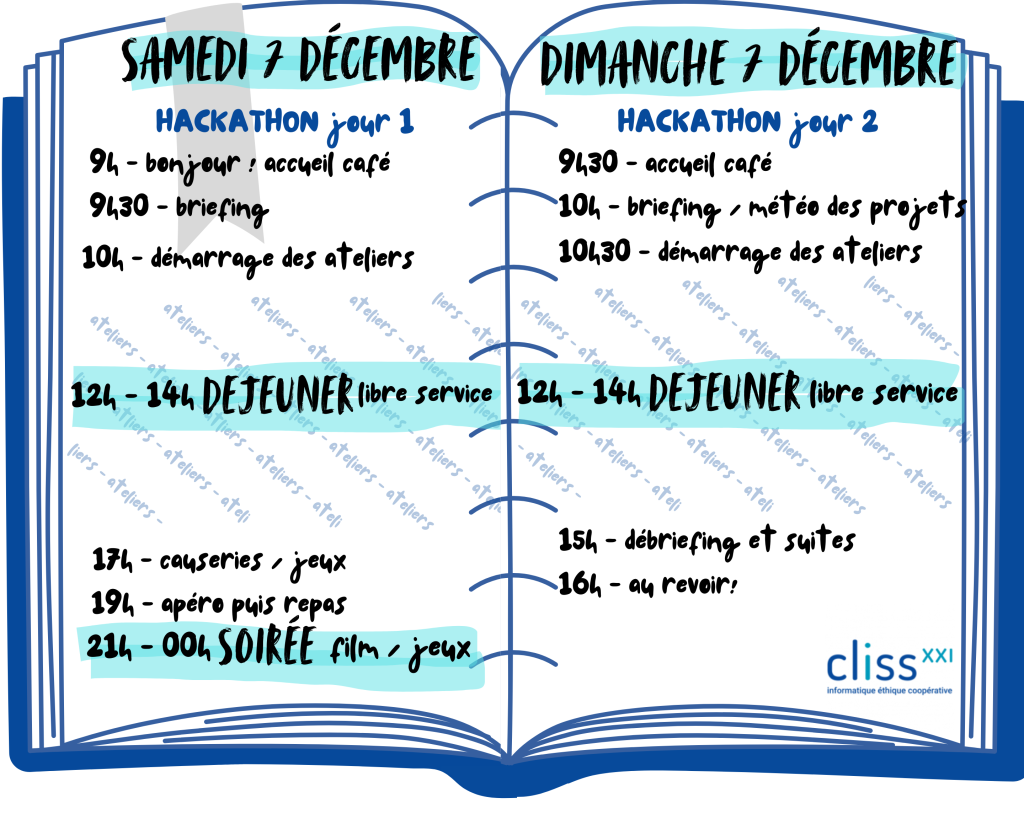 SAMEDI 7 DÉCEMBRE
HACKATHON jour 1
9h - bonjour ! accueil café
9h30 - briefing
10h - démarrage des ateliers
ateliers - ateliers - ateliers - ateliers
12h - 14h DEJEUNER libre service
liers - ateliers - ateliers - ateliers
17h - causeries / jeux
19h - apéro puis repas
21h - 00h SOIRÉE film / jeux
DIMANCHE 7 DÉCEMBRE
HACKATHON jour 2
9h30 - accueil café
10h - briefing / météo des projets
10h30 - démarrage des ateliers
ateliers - ateliers - ateliers - ateliers
12h - 14h DEJEUNER libre service
- ateliers - ateliers - ateliers
15h - débriefing et suites
16h - au revoir!
cliss XXI
informatique éthique coopérative